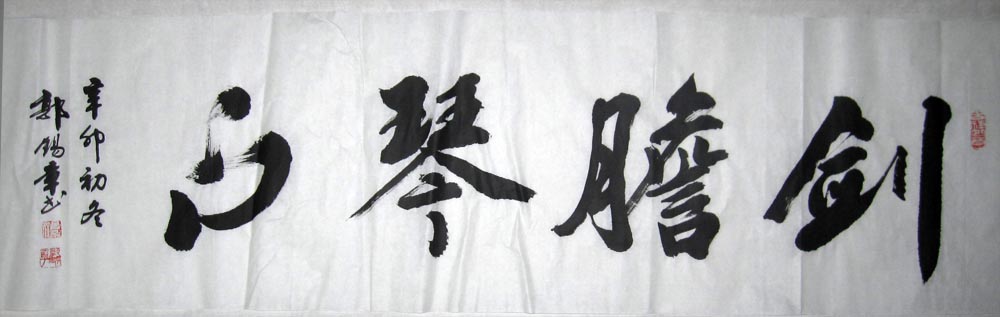 剑膽琴心
辛卯初冬
郭锡章书